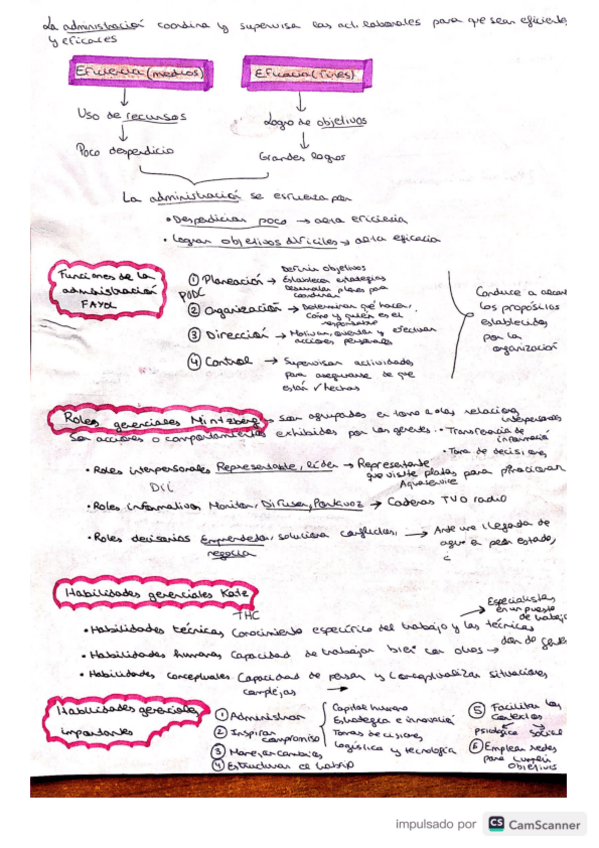 La administración coordina y supervisa las act. laborales para que sean eficientes
y eficaces
Eficiencia (medios)
Eficacia (fines)
Uso de recursos
Logro de objetivos
Poco desperdicio
Grandes logros
La administración se esfuerza por
• Desperdiciar poco → alta eficiencia
• Lograr objetivos difíciles → alta eficacia
Funciones de la
administración
FAYOL
PODC
① Planeación → Definir objetivos
Establecer estrategias
Desarrollar planes para
coordinar
② Organización → Determinar qué hacer,
Cómo y quién es el
responsable
③ Dirección → Motivar, orientar y efectuar
acciones personales
④ Control → Supervisar actividades
para asegurarse de que
están ✓ hechas
Conduce a
los propósitos
establecidos
por la
organización
Roles gerenciales Mintzberg → Son agrupados en torno a las relaciones
interpersonales
Son acciones o comportamientos exhibidos por los gerentes • Transferencia de
información
• Toma de decisiones
• Roles interpersonales Representante, líder → Representante
que visite plantas para
Aquaservice
• Roles informativos Monitor, Difusor, Portavoz → Cadenas TV o radio
• Roles decisorios Emprendedor, soluciona conflictos, → Ante una llegada de
agua en estado,
negocia
Habilidades gerenciales Katz
THC
→ Especialistas
en un puesto
de trabajo
• Habilidades técnicas Conocimiento específico del trabajo y las técnicas
• Habilidades humanas Capacidad de trabajar bien con otros → don de gentes
• Habilidades conceptuales Capacidad de pensar y conceptualizar situaciones
complejas →
Habilidades gerenciales
importantes
① Administrar
Capital humano
Estrategia e innovación
Tomas decisiones
Logística y tecnología
② Inspirar
compromiso
③ Manejar cambios
④ Estructurar el trabajo
⑤ Facilitar los
contextos
psicológico social
⑥ Emplear redes
para cumplir
objetivos
impulsado por CS CamScanner